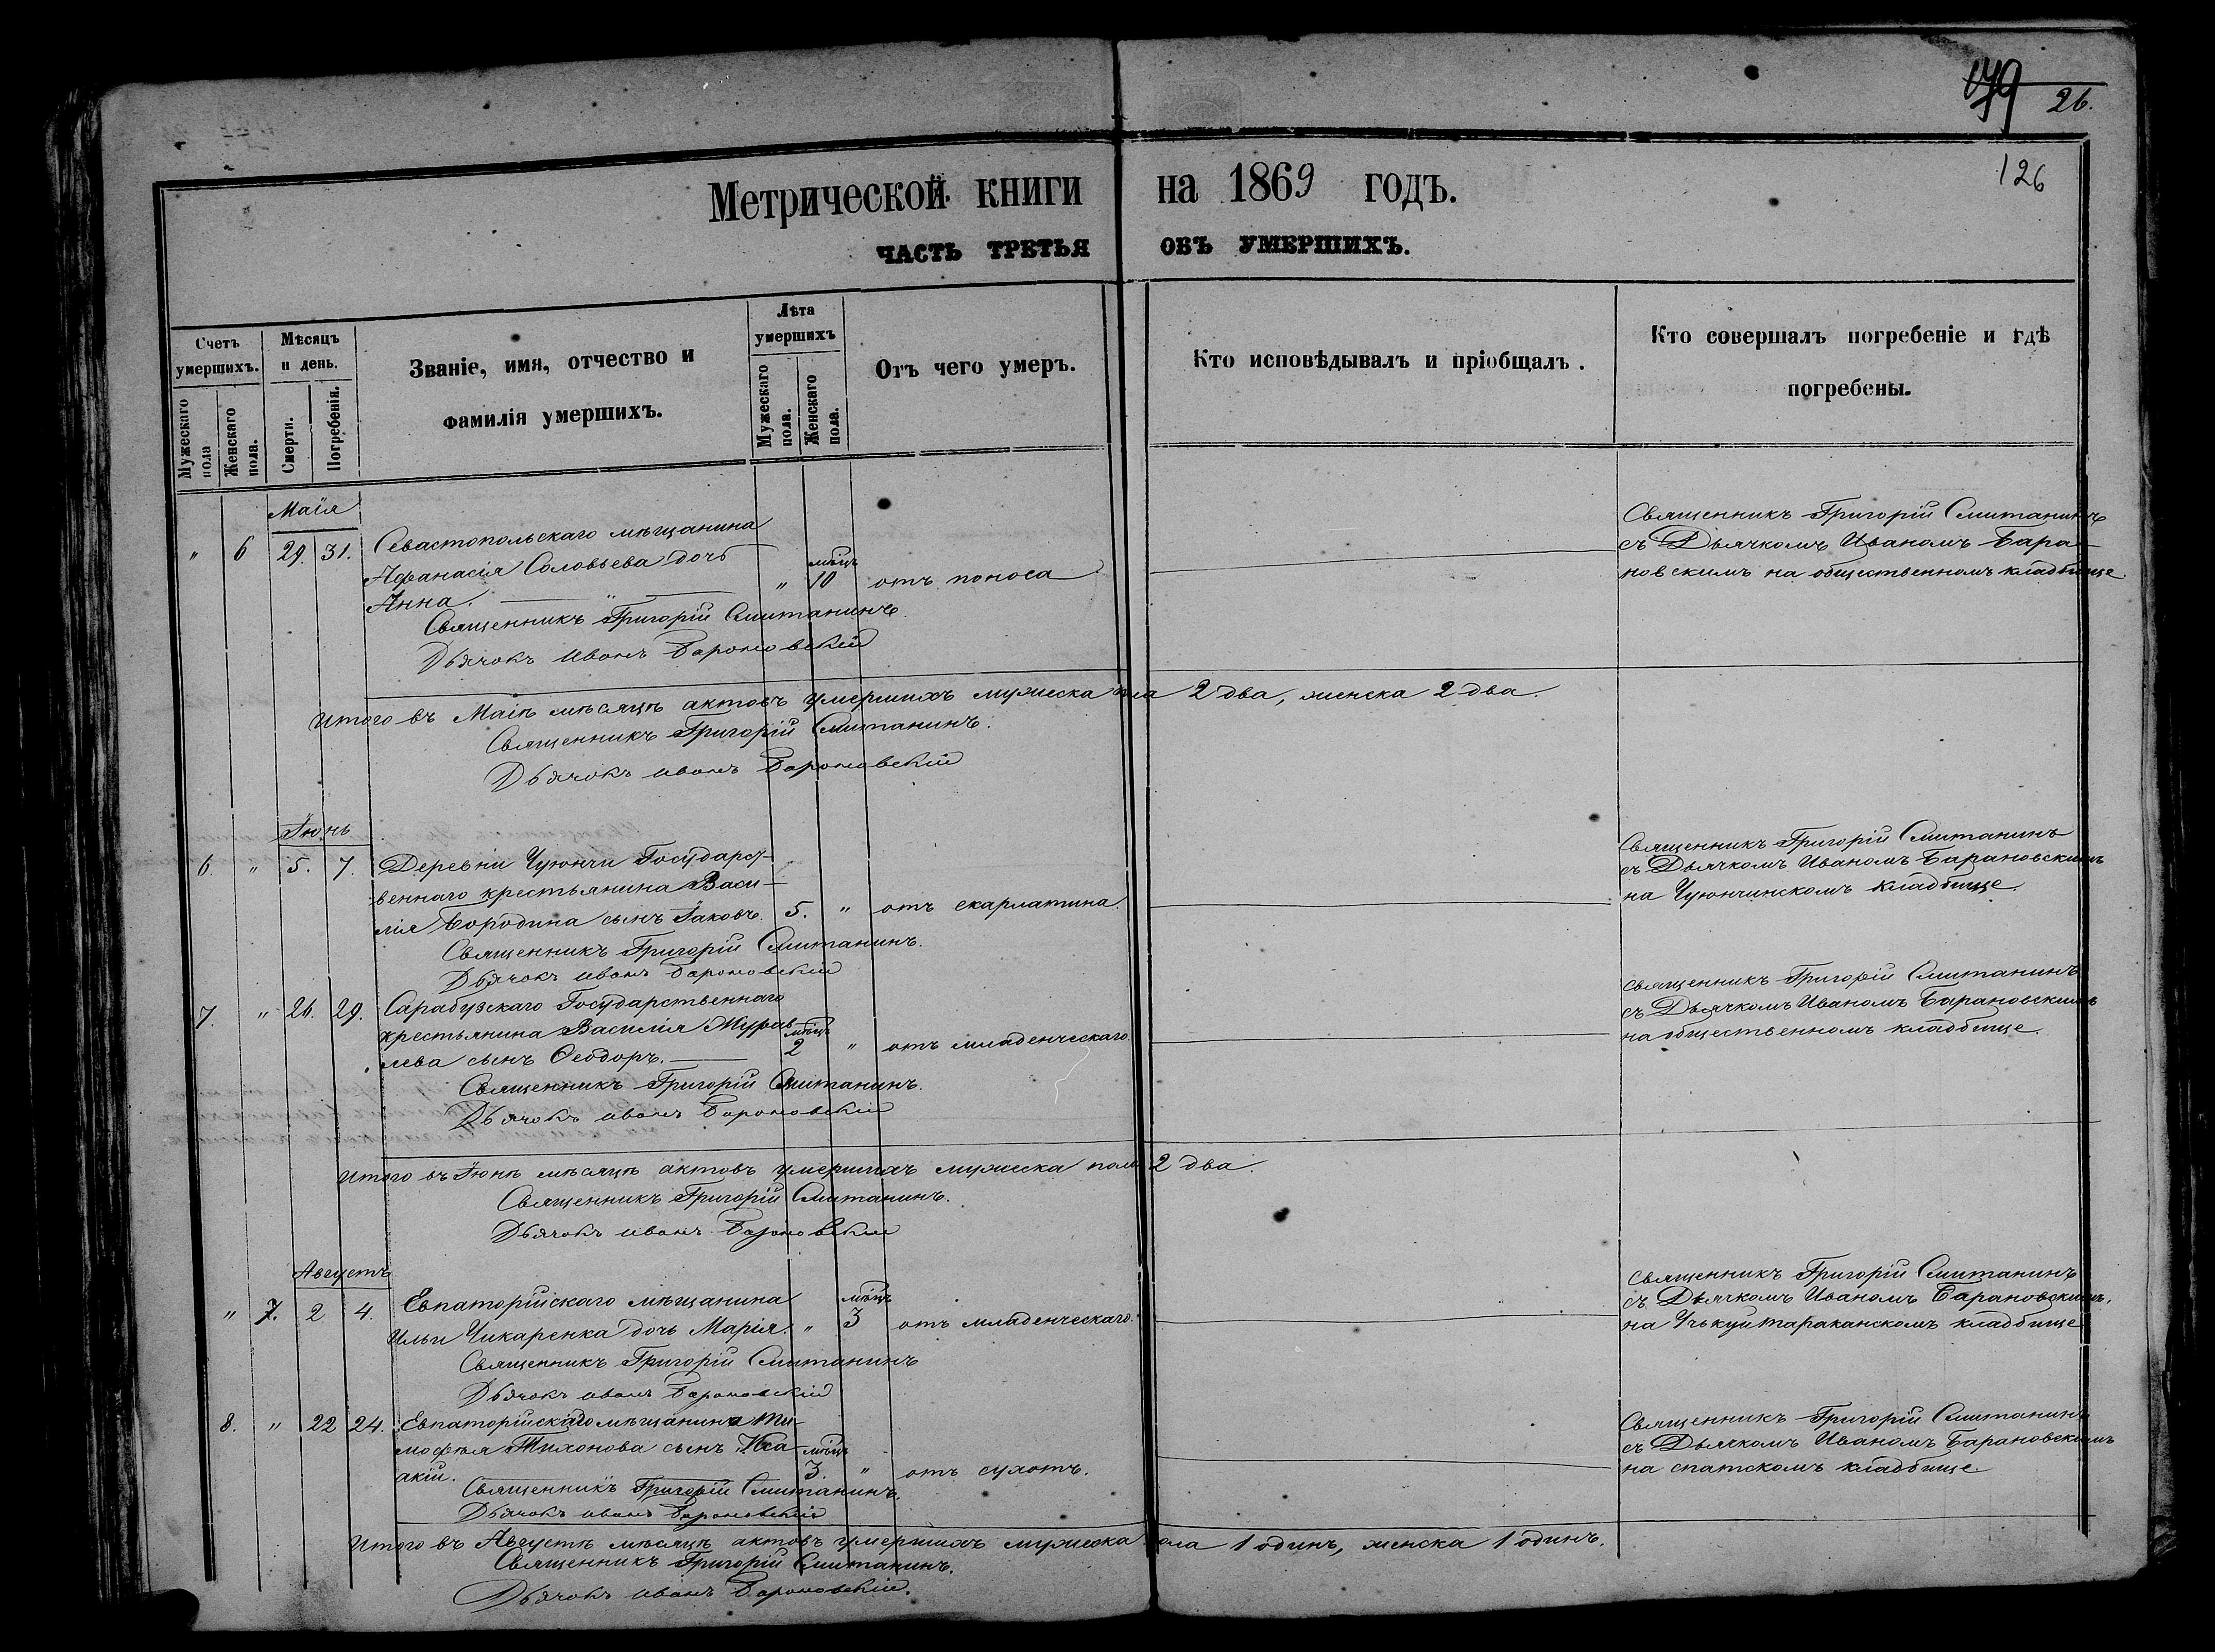 179 26.
126
Метрической книги на 1869 годъ.
ЧАСТЬ ТРЕТЬЯ ОБЪ УМЕРШИХЪ.
Счетъ умершихъ.
Мужескаго пола
Женскаго пола.
Мѣсяцъ и день.
Смерти.
Погребенія.
Званіе, имя, отчество и
фамилія умершихъ.
Лѣта умершихъ
Мужескаго пола.
Женскаго пола.
Отъ чего умеръ.
Кто исповѣдывалъ и пріобщалъ.
Кто совершалъ погребеніе и гдѣ
погребены.
Маія
" 6 29. 31. Севастопольскаго мѣщанина
Афанасія Соловьева дочь
Анна. " мѣць 10 отъ поноса
Священникъ Григорій Смитанинъ
съ Дьячкомъ Иваномъ Бара-
новскимъ на общественномъ кладбище.
Священникъ Григорій Смитанинъ.
Дьячокъ Иванъ Барановскій
Итого въ Маіѣ мѣсяцѣ актовъ умершихъ мужеска пола 2 два, женска 2 два.
Священникъ Григорій Смитанинъ.
Дьячокъ Иванъ Барановскій
Іюнь
6. " 5. 7. Деревни Чуюнчи Государст-
веннаго крестьянина Васи-
лія Бородина сынъ Іаковъ. 5. " отъ скарлатина.
Священникъ Григорій Смитанинъ
съ Дьячкомъ Иваномъ Барановскимъ
на Чуюнчинскомъ кладбище.
Священникъ Григорій Смитанинъ.
Дьячокъ Иванъ Барановскій
7. " 26. 29. Сарабузскаго Государственнаго
крестьянина Василія Мурав-
лева сынъ Ѳеодоръ. мѣць 2 " отъ младенческаго.
Священникъ Григорій Смитанинъ
съ Дьячкомъ Иваномъ Барановскимъ
на общественномъ кладбище.
Священникъ Григорій Смитанинъ.
Дьячокъ Иванъ Барановскій
Итого въ Іюнѣ мѣсяцѣ актовъ умершихъ мужеска пола 2 два.
Священникъ Григорій Смитанинъ.
Дьячокъ Иванъ Барановскій
Августъ
" 7. 2 4. Евпаторійскаго мѣщанина
Ильи Чикаренка дочь Марія. " мѣць 3 отъ младенческаго.
Священникъ Григорій Смитанинъ
съ Дьячкомъ Иваномъ Барановскимъ,
на кладбище
Священникъ Григорій Смитанинъ
Дьячокъ Иванъ Барановскій
8. " 22 24. Евпаторійскаго мѣщанина Ти-
мофѣя Тихонова сынъ Иса-
акій. мѣць 3. " отъ сухотъ.
Священникъ Григорій Смитанинъ
съ Дьячкомъ Иваномъ Барановскимъ
на спатскомъ кладбище.
Священникъ Григорій Смитанинъ.
Дьячокъ Иванъ Барановскій
Итого въ Августѣ мѣсяцѣ актовъ умершихъ мужеска пола 1 одинъ, женска 1 одинъ.
Священникъ Григорій Смитанинъ.
Дьячокъ Иванъ Барановскій.